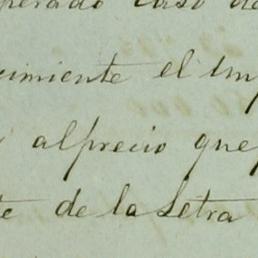 perado caso de
cimiente el Imp
alprecio que
te de la Letra